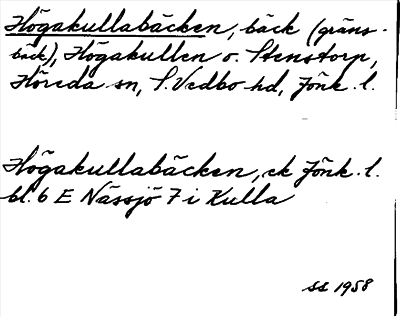 Högakullabäcken, bäck (gräns-
bäck), Högakullen o. Stenstorp,
Höreda sn, S. Vedbo hd, Jönk. l.
Högakullabäcken, ek Jönk. l.
bl. 6 E Nässjö 7 i Kulla
ss 1958